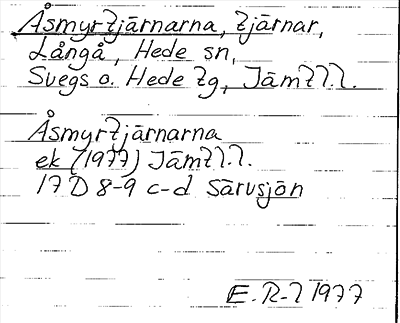 Åsmyrtjärnarna, tjärnar,
Långå, Hede sn,
Svegs o. Hede tg, Jämtl.l.
Åsmyrtjärnarna
ek (1977) Jämtl.l.
17 D 8-9 c-d Särvsjön
E. R-l 1977